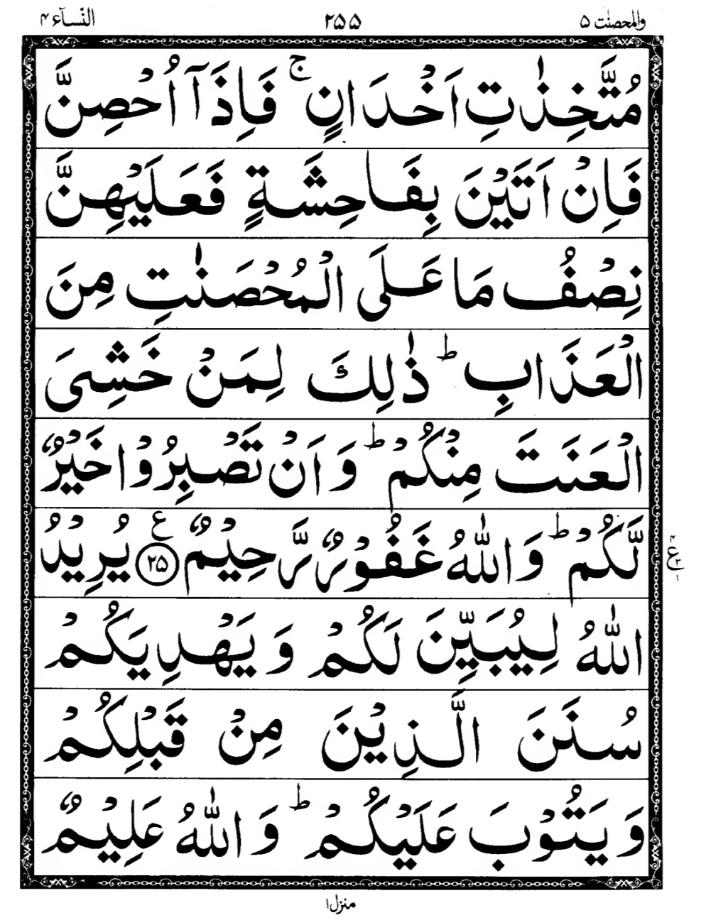 والمحصنٰت ۵ ۲۵۵ النسآء ۴
مُتَّخِذٰتِ اَخْدَانٍ ۚ فَاِذَآ اُحْصِنَّ
فَاِنْ اَتَيْنَ بِفَاحِشَةٍ فَعَلَيْهِنَّ
نِصْفُ مَا عَلَى الْمُحْصَنٰتِ مِنَ
الْعَذَابِ ؕ ذٰلِكَ لِمَنْ خَشِىَ
الْعَنَتَ مِنْكُمْ ؕ وَ اَنْ تَصْبِرُوْا خَيْرٌ
لَّكُمْ ؕ وَاللّٰهُ غَفُوْرٌ رَّحِيْمٌ ﴿۲۵﴾ ع يُرِيْدُ
اللّٰهُ لِيُبَيِّنَ لَكُمْ وَ يَهْدِيَكُمْ
سُنَنَ الَّذِيْنَ مِنْ قَبْلِكُمْ
وَ يَتُوْبَ عَلَيْكُمْ ؕ وَ اللّٰهُ عَلِيْمٌ
منزل۱